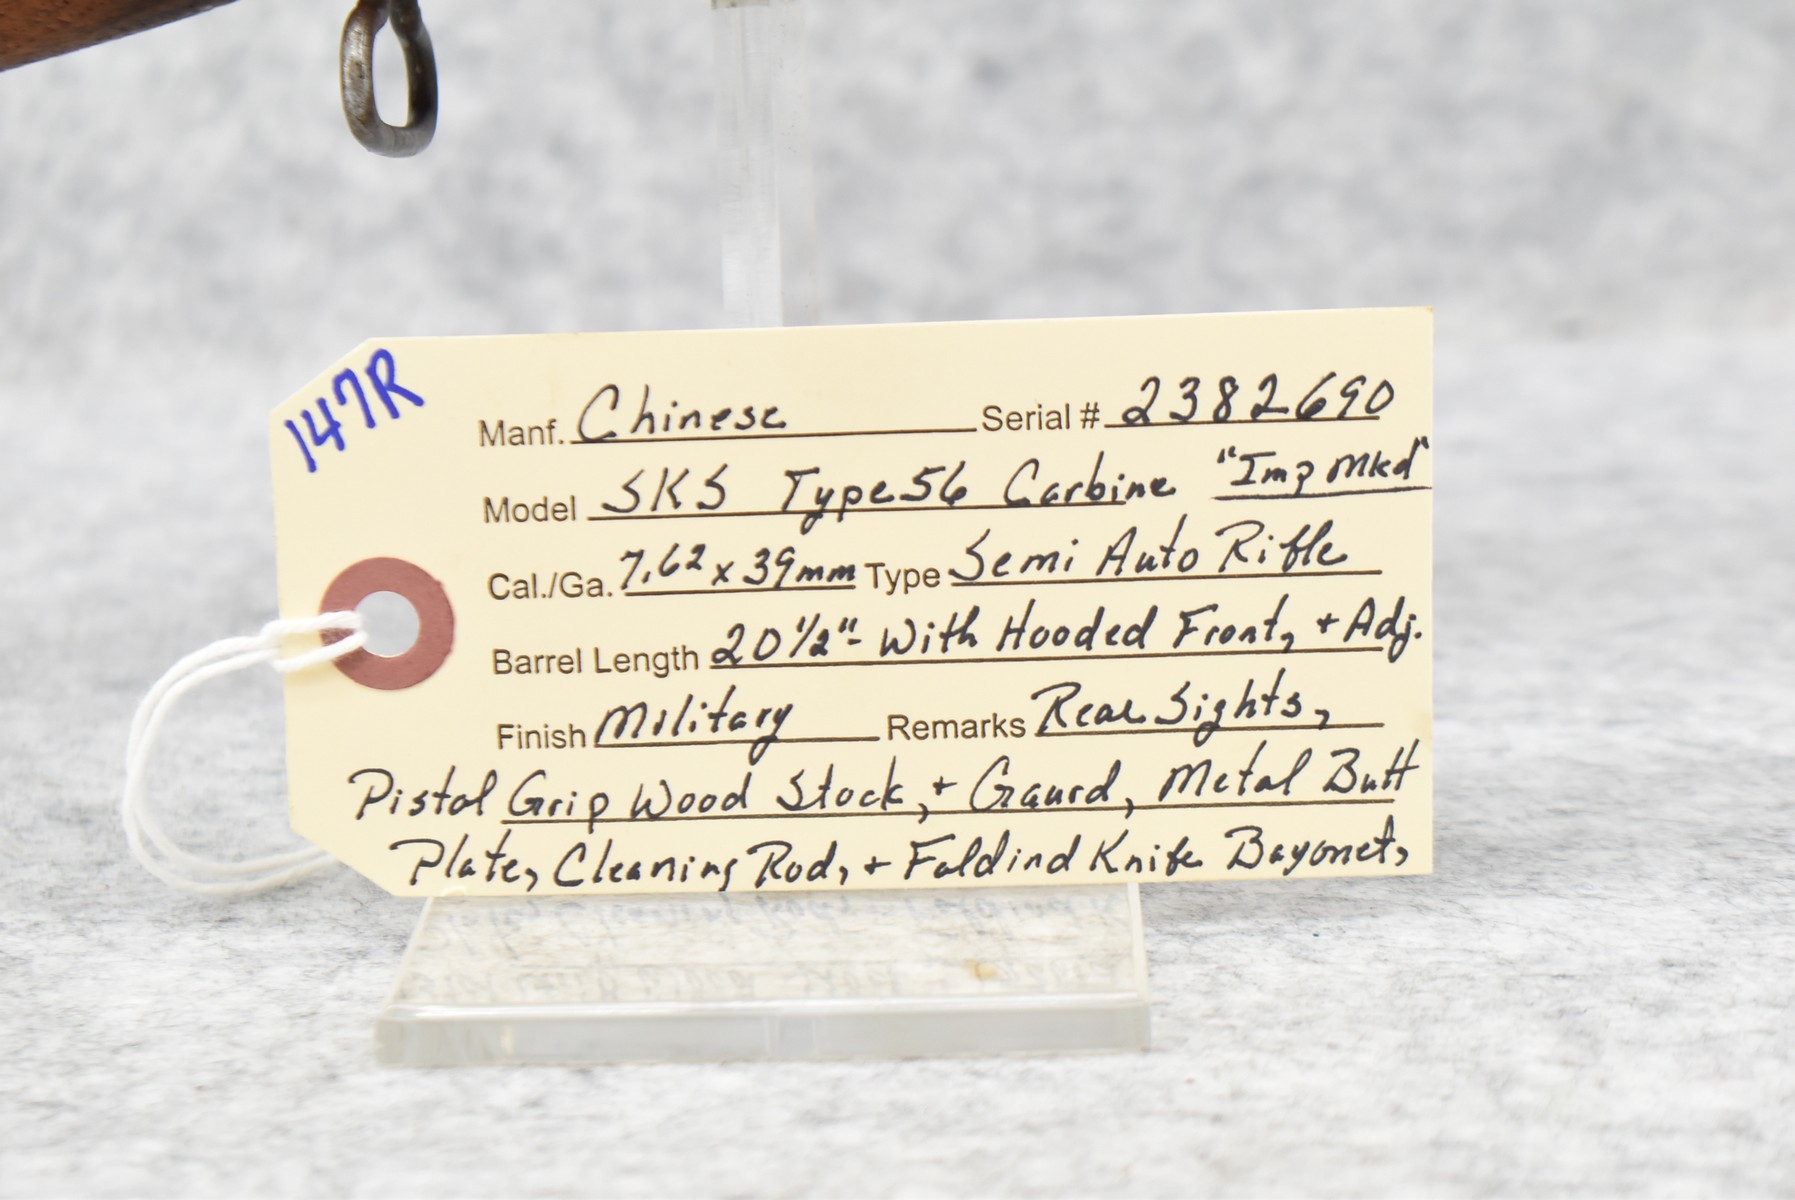 147R
Manf. Chinese Serial # 2382690
Model SKS Type 56 Carbine "Imp Mkd"
Cal./Ga. 7.62 x 39mm Type Semi Auto Rifle
Barrel Length 20 1/2"- With Hooded Front, + Adj.
Finish Military Remarks Rear Sights,
Pistol Grip Wood Stock, + Gaurd, Metal Butt
Plate, Cleaning Rod, + Foldind Knife Bayonet,